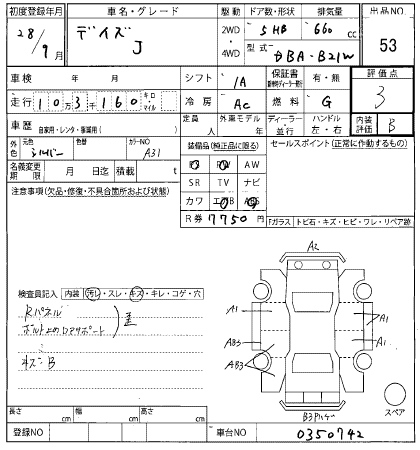 初度登録年月 車名・グレード 駆動 ドア数・形状 排気量 出品NO
28/9月 デイズ J 2WD・4WD 5HB 660cc 53
型式 DBA-B21W
車検 年 月 シフト IA 保証書 有・無 評価点
走行 10万3千160 キロ・マイル 冷房 AC 燃料 G 3
車歴 自家用・レンタ・事業用( ) 定員 人 外車モデル 年 ディーラー・並行 ハンドル 左・右 内装評価 B
外色 元色 シルバー 色替 カラーNO A31
装備品(純正品に限る) セールスポイント(正常に作動するもの)
名義変更期限 月 日迄 積載 t
PS PW AW
SR TV ナビ
カワ エアB ABS
R券 7750円
注意事項(欠品・修復・不具合箇所および状態)
Fガラス トビ石・キズ・ヒビ・ワレ・リペア跡
検査員記入 内装 汚レ・スレ・キズ・キレ・コゲ・穴
Rパネル
キズB
A2
A1 A1
AB3 A1
AB3
スペア
長さ cm 幅 cm 高さ cm
登録NO 車台NO 0350742